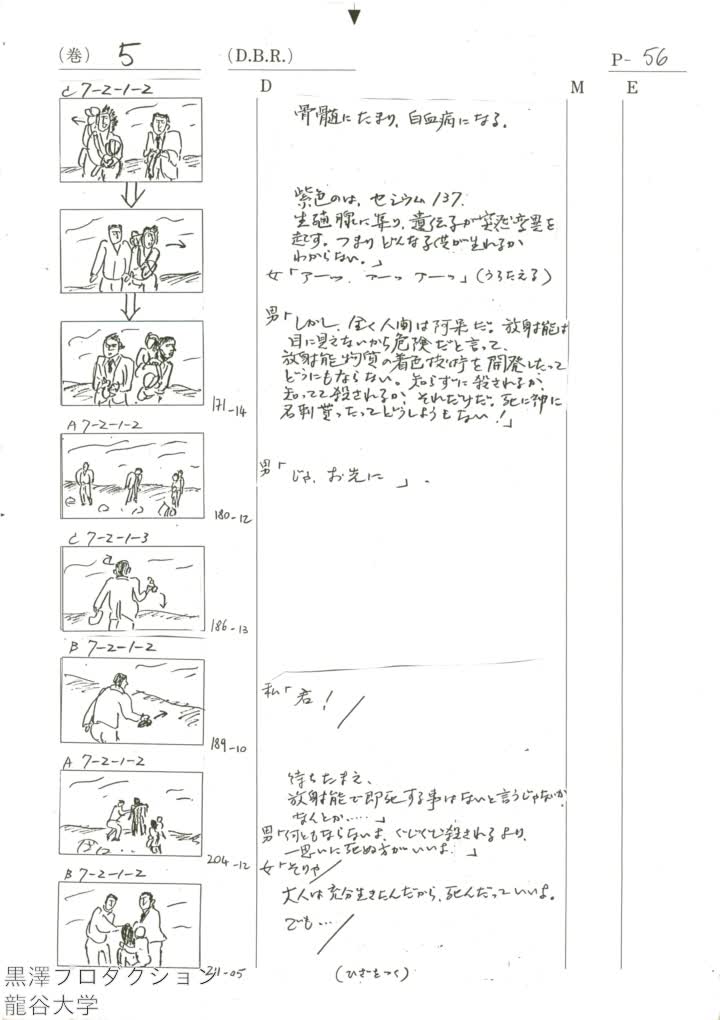 (巻) 5 (D.B.R.) P- 56
D M E
C 7-2-1-2
骨髄にたまり、白血病になる。
紫色のは、セシウム137.
生殖腺に集り、遺伝子が突然変異を
起す。つまりどんな子供が生れるか
わからない。」
女「アーッ アーッ アーッ」(うろたえる)
男「しかし、全く人間は阿呆だ。放射能は
目に見えないから危険だと言って、
放射能物質の着色技術を開発したって
どうにもならない。知らずに殺されるか、
知ってて殺されるか、それだけだ。死に神に
名刺貰ったってどうしようもない!」
171-14
A 7-2-1-2
男「じゃ、お先に 」.
180-12
C 7-2-1-3
186-13
B 7-2-1-2
私「君!
189-10
A 7-2-1-2
待ちたまえ、
放射能で即死する事はないと言うじゃないか、
なんとか……」
男「何ともならないよ、くじくじ殺されるより、
一思いに死ぬ方がいいよ。」
204-12
女「そりゃ
B 7-2-1-2
大人は充分生きたんだから、死んだっていいよ。
でも…
(ひざをつく)
211-05
黒澤プロダクション
龍谷大学